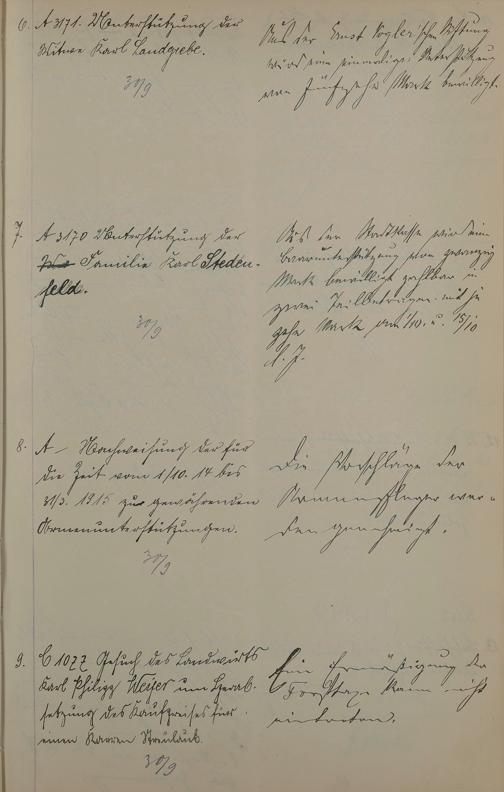 6. A 3171. Unterstützung der
Witwe Karl Landgrebe.
30/9
Aus der Ernst Vogler'schen Stiftung
wird eine einmalige Unterstützung
von Fünfzehn Mark bewilligt.
7. A 3170 Unterstützung der
Familie Karl Steden-
feld.
30/9
Aus der Stadtkasse wird eine
Baarunterstützung von zwanzig
Mark bewilligt zahlbar in
zwei Teilbeträgen mit je
zehn Mark am 1/10. u. 15/10
l. J.
8. A – Nachweisung der für
die Zeit vom 1/10. 14 bis
31/3. 1915 zu gewährenden
Armenunterstützungen.
30/9
Die Vorschläge der
Armenpfleger wer-
den genehmigt.
9. C 1077 Gesuch des Landwirts
Karl Philipp Weijer um Herab-
setzung des Kaufpreises für
einen Karren Streulaub.
30/9
Eine Ermäßigung der
Forsttaxe kann nicht
eintreten.